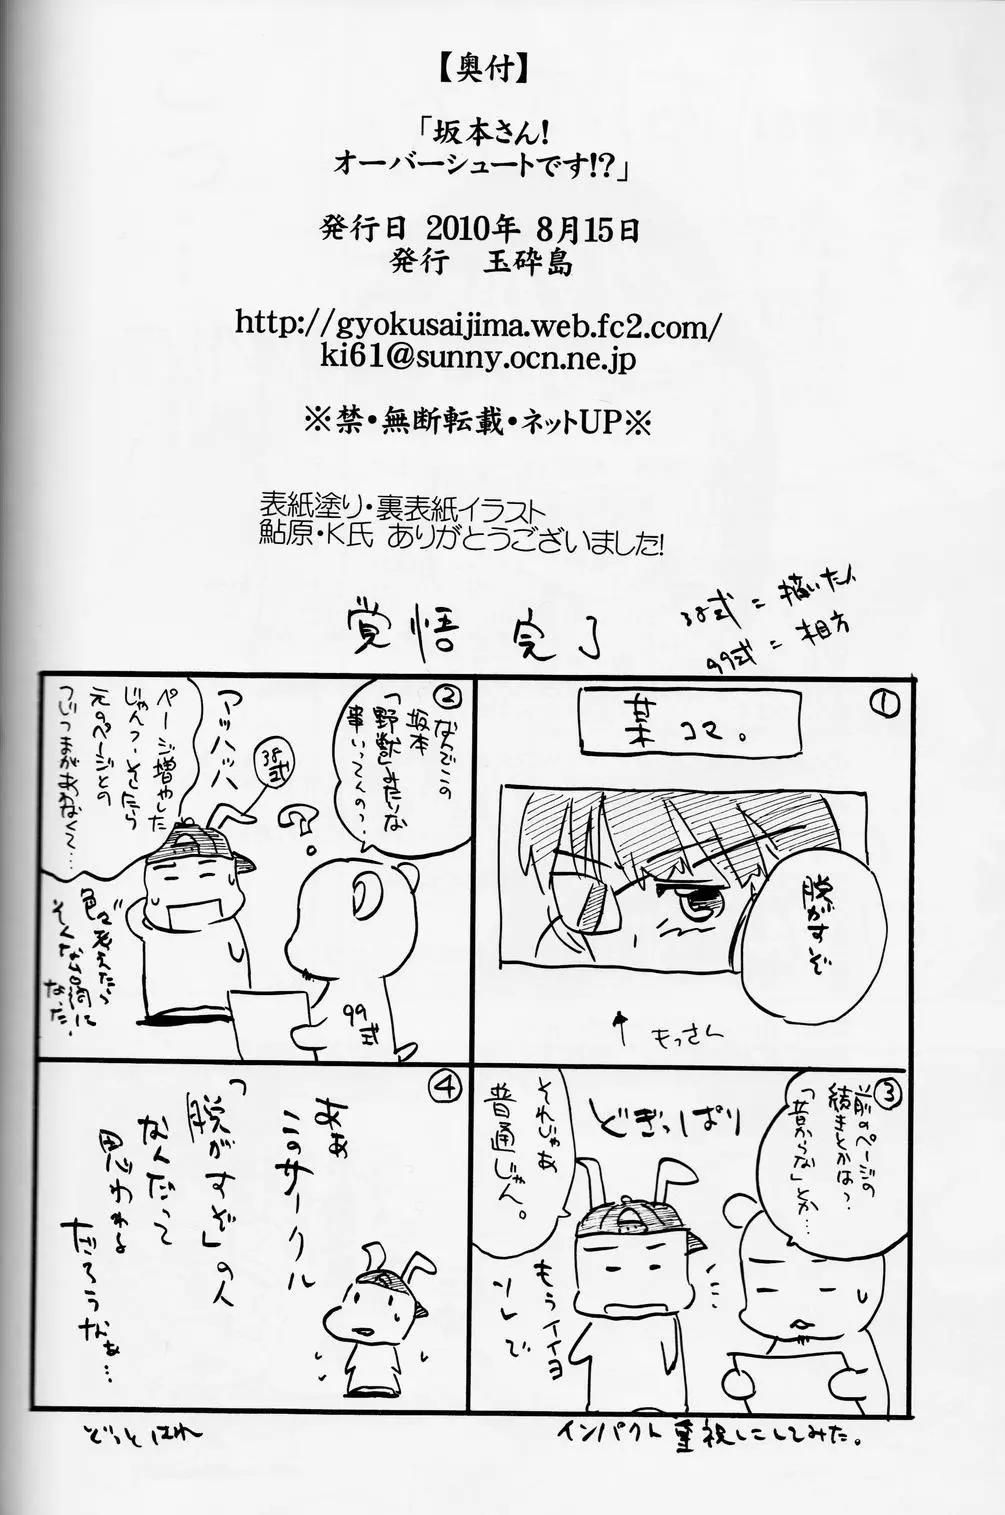 【奥付】
「坂本さん!
オーバーシュートです!?」
発行日 2010年 8月15日
発行 玉砕島
http://gyokusaijima.web.fc2.com/
ki61@sunny.ocn.ne.jp
※禁・無断転載・ネットUP※
表紙塗り・裏表紙イラスト
鮎原・K氏 ありがとうございました!
覚悟 完了
38式=描いた人
99式=相方
①
某コマ。
脱がすぞ
もっさん
②
なんでこの
坂本
「野獣」みたいな
事いってんの?
アッハッハ
38式
ページ増やした
じゃんつーそしたら
元のページとの
つじつまがあわなくて…
色々考えたら
そんな台詞に
なった。
99式
③
前のページの
続きとかは?
「昔からな」とか…
どぎっぱり
それじゃあ
普通じゃん。
もうイイヨ
ソレで
④
ああ
このサークル
「脱がすぞ」の人
なんだって
思われる
だろうなぁ…
どっとはれ
インパクト重視にしてみた。